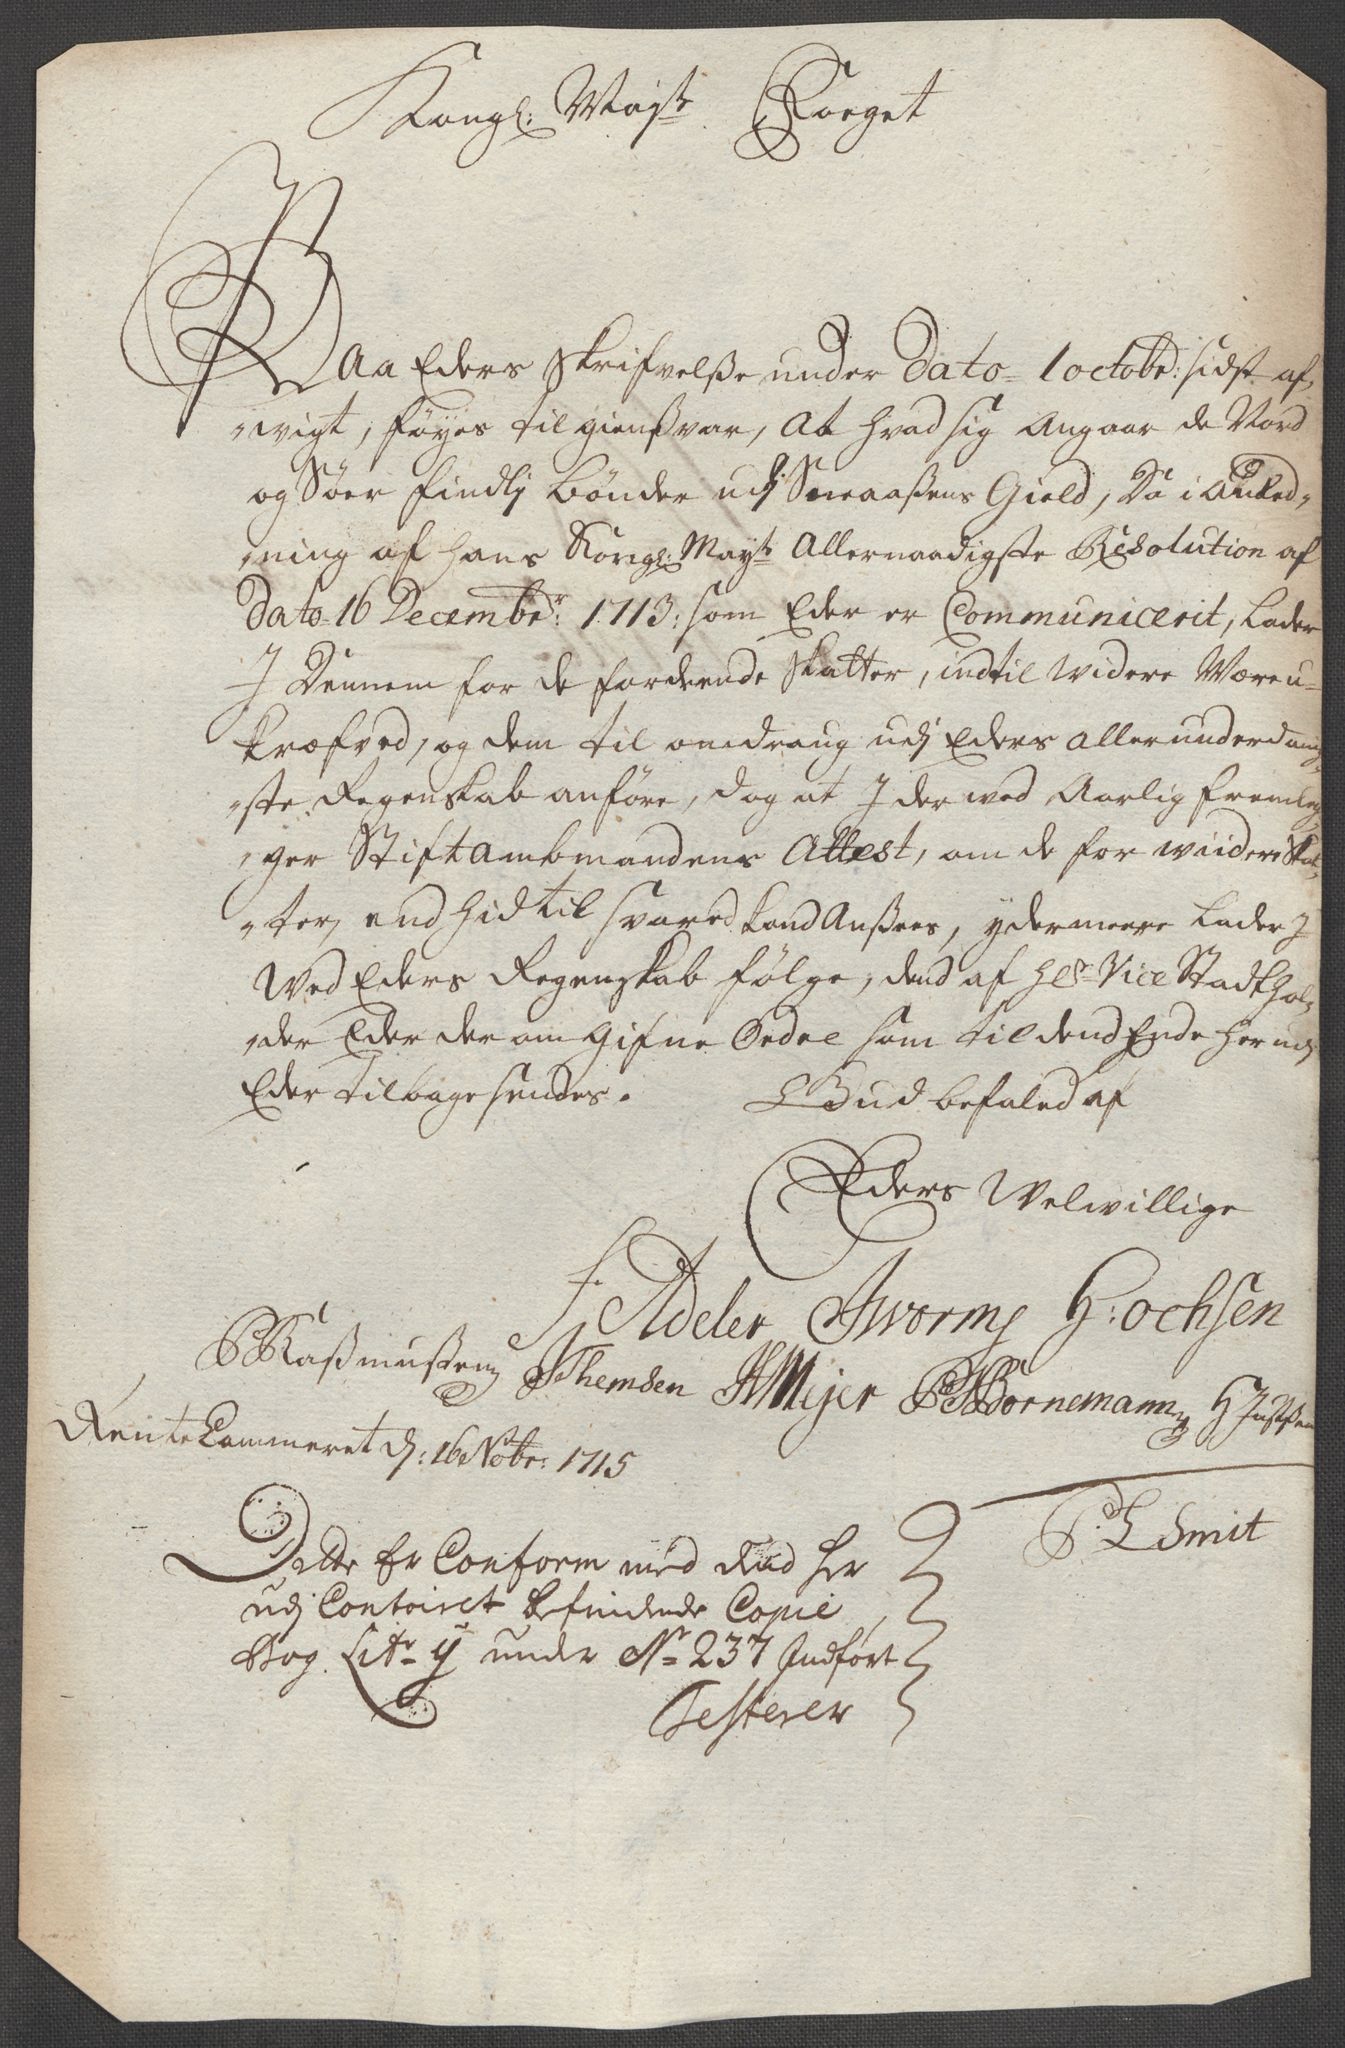 Kongl: Mayts Foeget
Paa Eders Skrifvelße under Dato 1 octobr: sidst af-
-vigt, föyes til gienßvar, At hvad sig Angaar de Nord
og Söer findlj bönder udj Sneaaßens Gield, Da i Anled-
-ning af hans Kongl: Mayts Allernaadigste Resolution af
Dato 16 Decembr: 1713: som Eder er Communicerit, Lader
J Dennem for de forderende Skatter, indtil widere Være u-
kræfved, og dem til omdraug udj Eders allerunderdanig-
-ste Regenskab anföre, dog at J der ved Aarlig fremleg-
-ger Stiftambtmandens Attest, om de for wiidere Skat-
-ter, end hid til svared kand Anßees, ydermeere Lader J
Ved Eders Regenskab fölge, dend af Hr Vice Stadthol-
-der Eder der om gifne Ordre som til dend Ende her udj
Eder tilbage sendes. Gud befaled af
Eders Velwillige
F. Adeler JWorm H: ochsen
PRaßmußen JThemsen HMeyer PBornemann HJustsen
RenteCammeret d: 16 Nobr: 1715
P: L Smit
Dette Er Conform med dend her
udj Contoiret befindende Copie
Bog Litr y under No 237 Indfört
Testerer